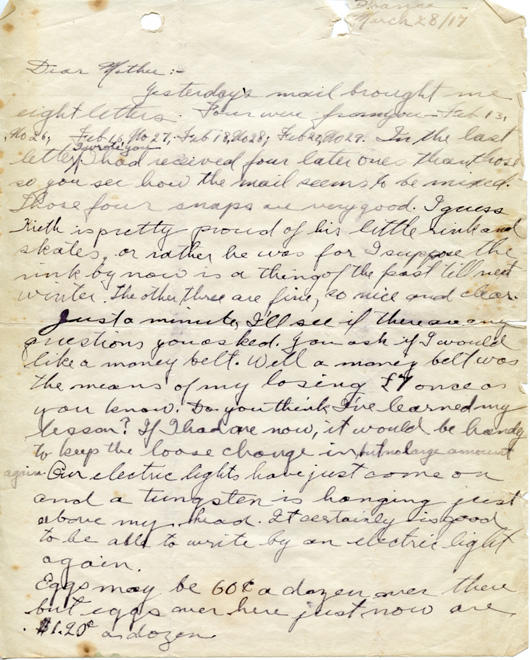 France
March 28/17
Dear Mother:-
Yesterday's mail brought me
eight letters. Four were from you - Feb 13,
No 26, Feb 16, No 27, Feb 18, No 28, Feb 20, No 29. In the last
letter I wrote you I had received four later ones than those
so you see how the mail seems to be mixed.
Those four snaps are very good. I guess
Kieth is pretty proud of his little rink and
skates, or rather he was for I suppose the
rink by now is a thing of the past till next
winter. The other three are fine, so nice and clear.
Just a minute, I'll see if there are any
questions you asked. You ask if I would
like a money belt. Well a money belt was
the means of my losing £7 once as
you know. Do you think I've learned my
lesson? If I had one now, it would be handy
to keep the loose change in but no large amount
again. Our electric lights have just come on
and a tungsten is hanging just
above my head. It certainly is good
to be able to write by an electric light
again.
Eggs may be 60¢ a dozen over there
but eggs over here just now are
$1.20¢ a dozen